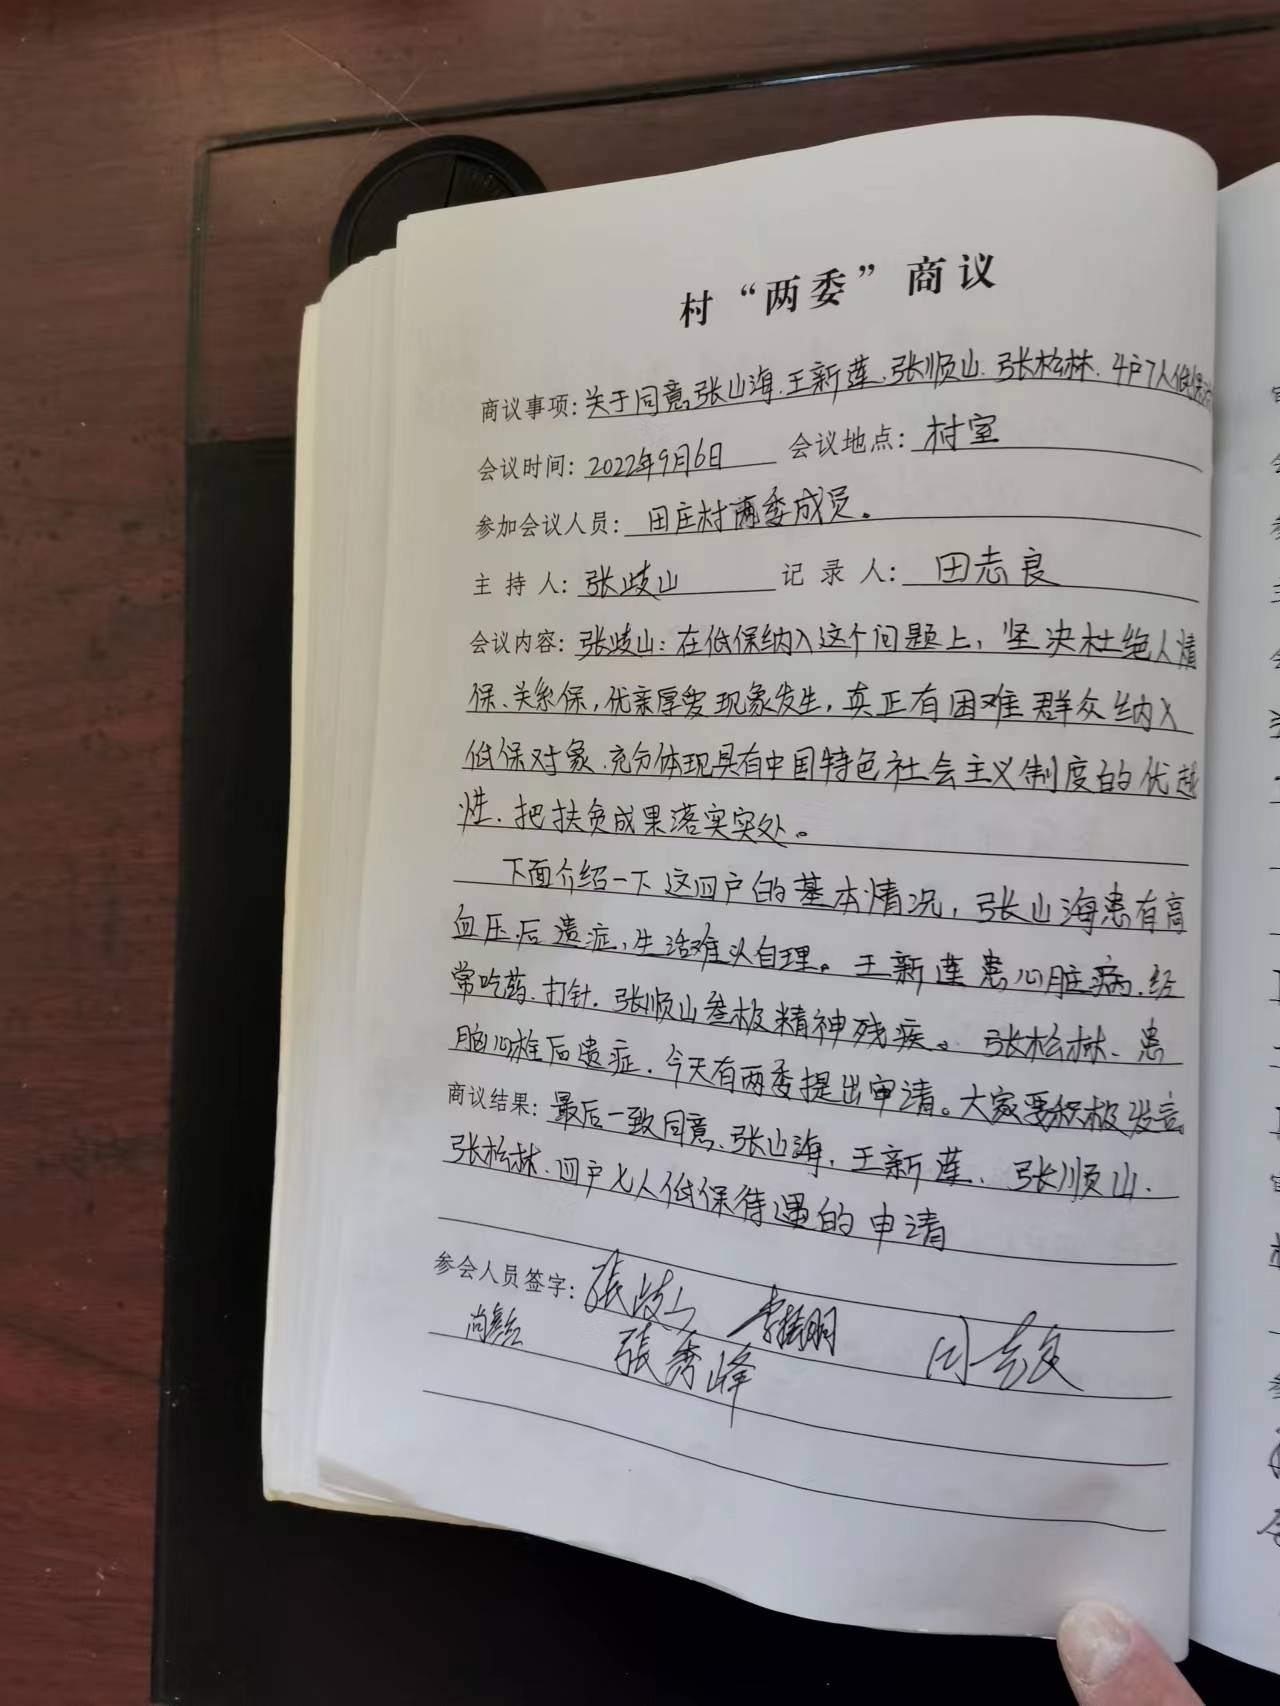 村“两委”商议
商议事项：关于同意张山海、王新莲、张顺山、张松林、4户7人低保
会议时间：2022年9月6日 会议地点：村室
参加会议人员：田庄村两委成员。
主持人：张歧山 记录人：田志良
会议内容：张歧山：在低保纳入这个问题上，坚决杜绝人情
保、关系保，优亲厚爱现象发生，真正有困难群众纳入
低保对象、充分体现具有中国特色社会主义制度的优越
性、把扶贫成果落实实处。
下面介绍一下这四户的基本情况，张山海患有高
血压后遗症，生活难以自理。王新莲患心脏病、经
常吃药、打针、张顺山叁级精神残疾。张松林、患
脑心栓后遗症、今天有两委提出申请。大家要积极发言
商议结果：最后一致同意、张山海、王新莲、张顺山、
张松林、四户七人低保待遇的申请
参会人员签字：張歧山 田志良
張秀峰